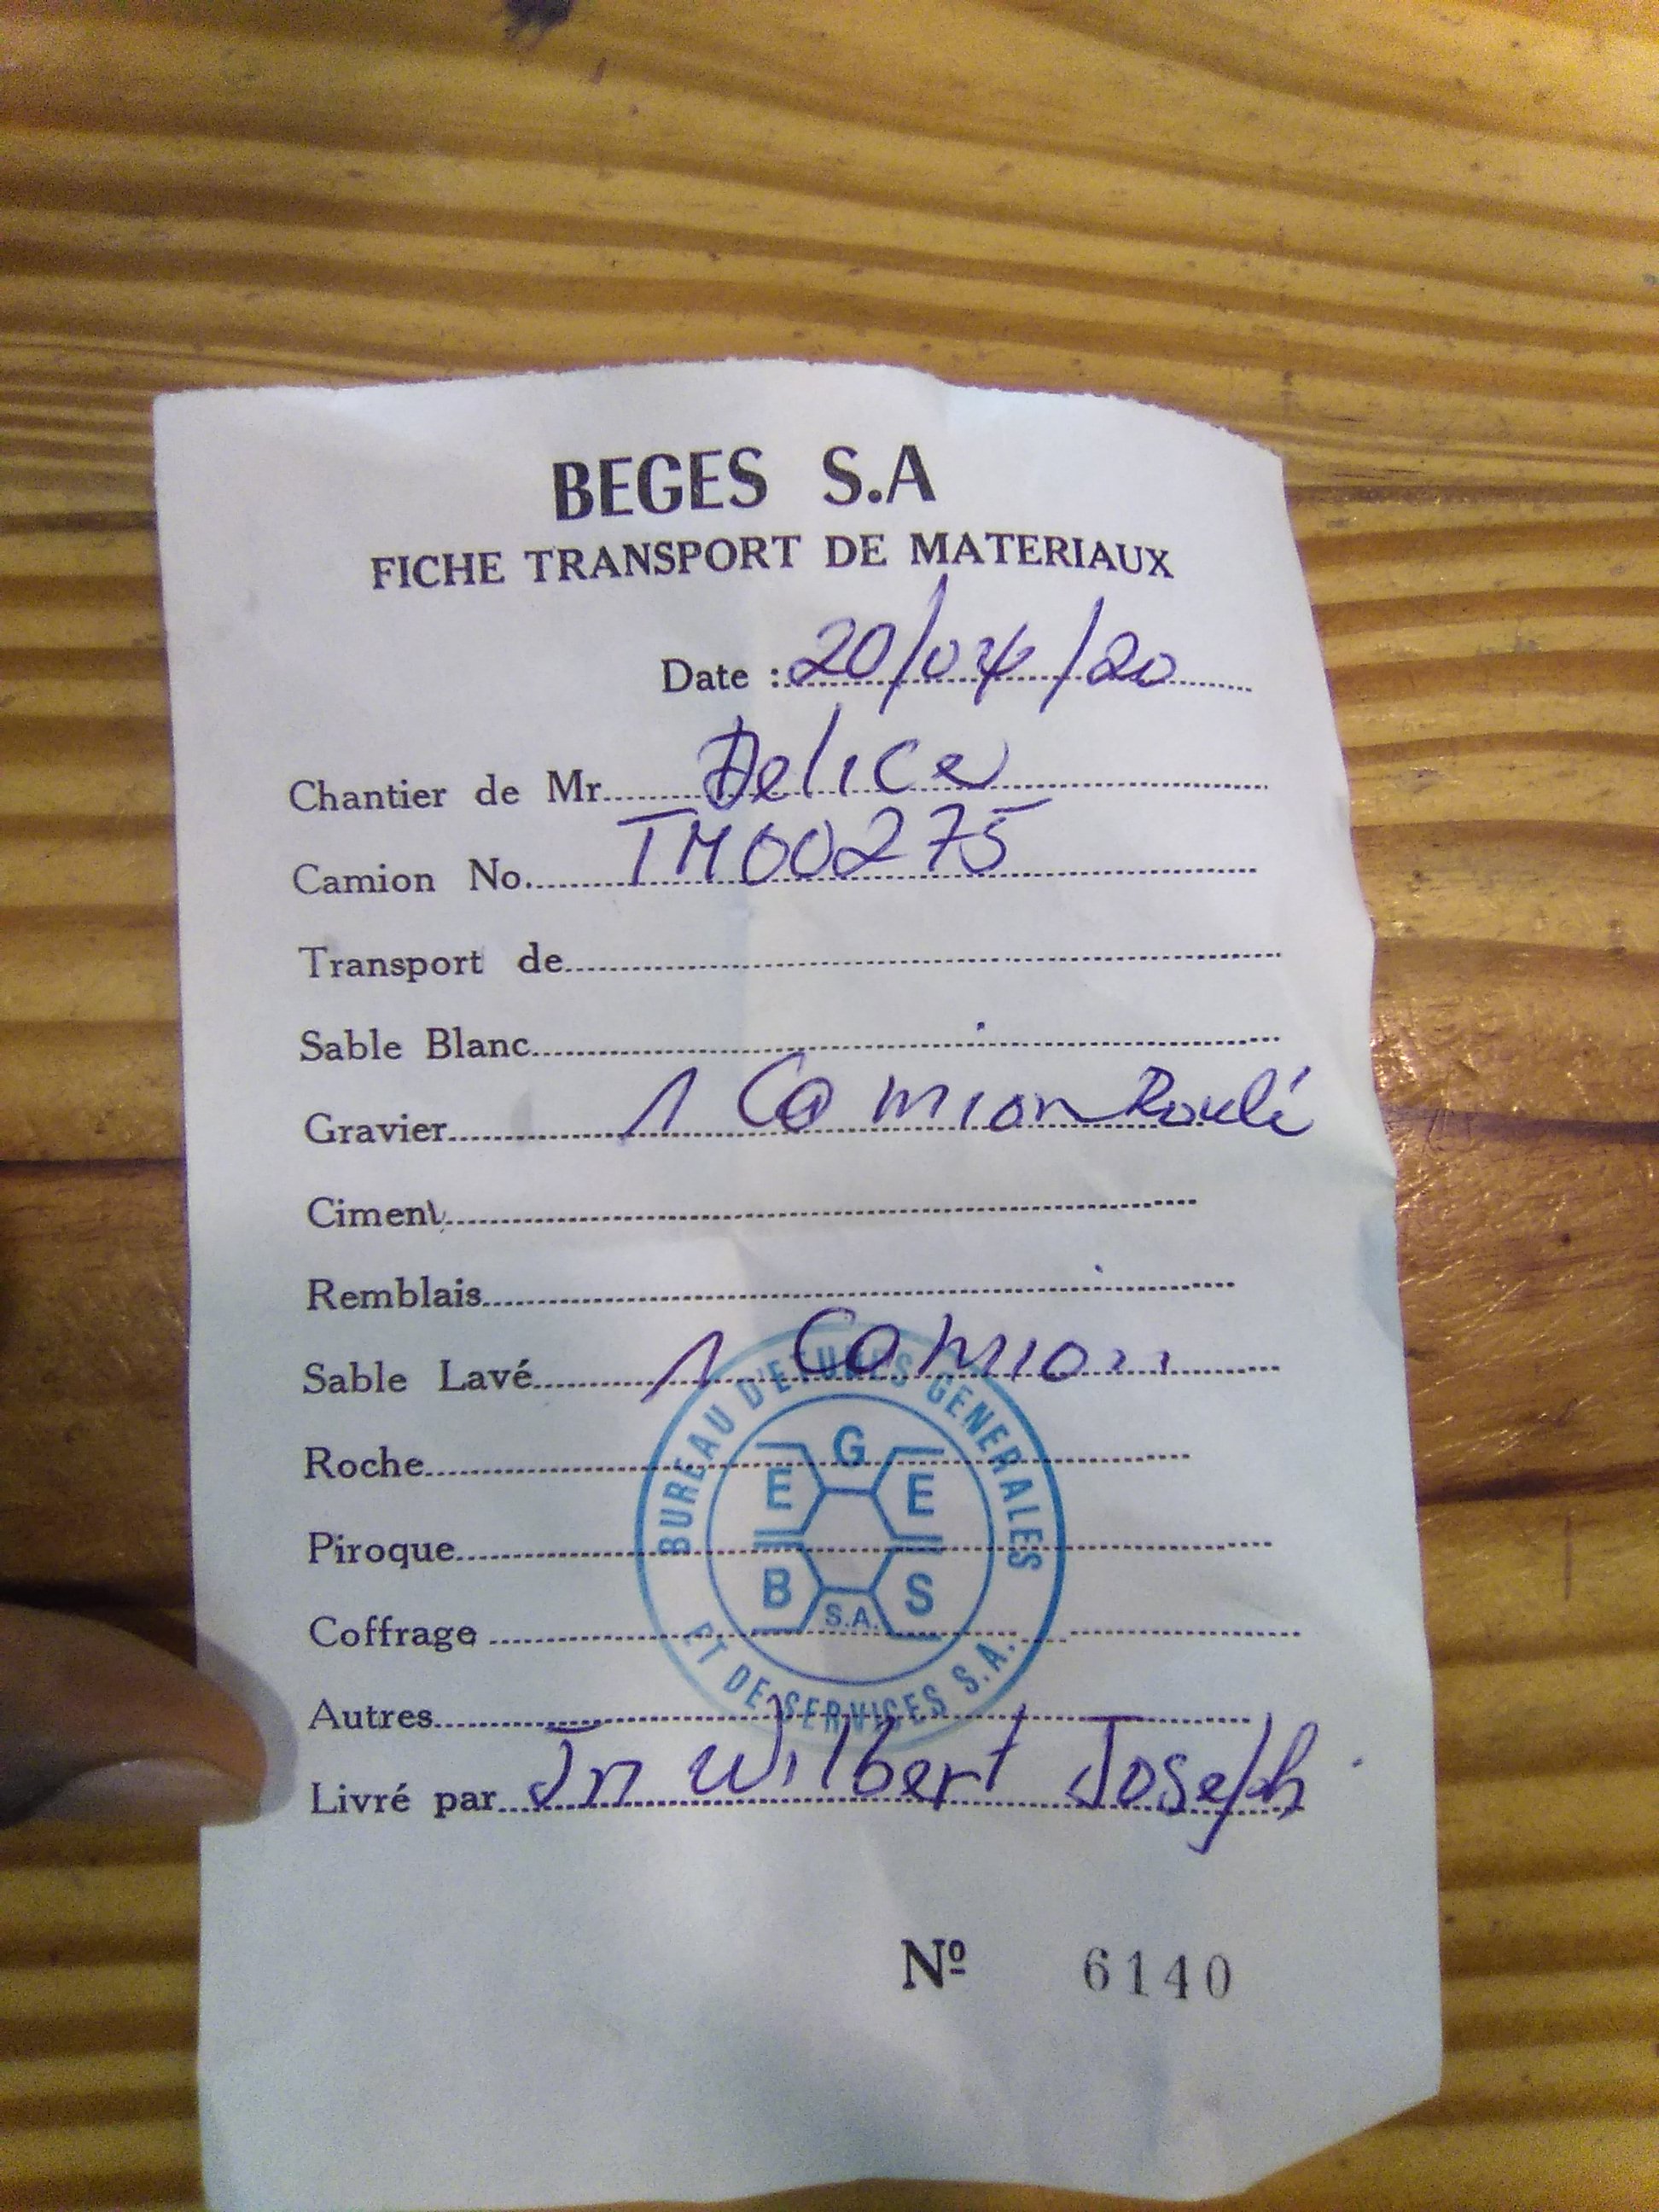 BEGES S.A
FICHE TRANSPORT DE MATERIAUX
Date : 20/04/20
Chantier de Mr Delice
Camion No. TM00275
Transport de
Sable Blanc
Gravier 1 Camion Roulé
Ciment
Remblais
Sable Lavé 1 Camion
Roche
Piroque
Coffrage
Autres
Livré par Jn Wilbert Joseph
Nº 6140
BUREAU D'ETUDES GENERALES
ET DE SERVICES S.A.
B E G E S
S.A.